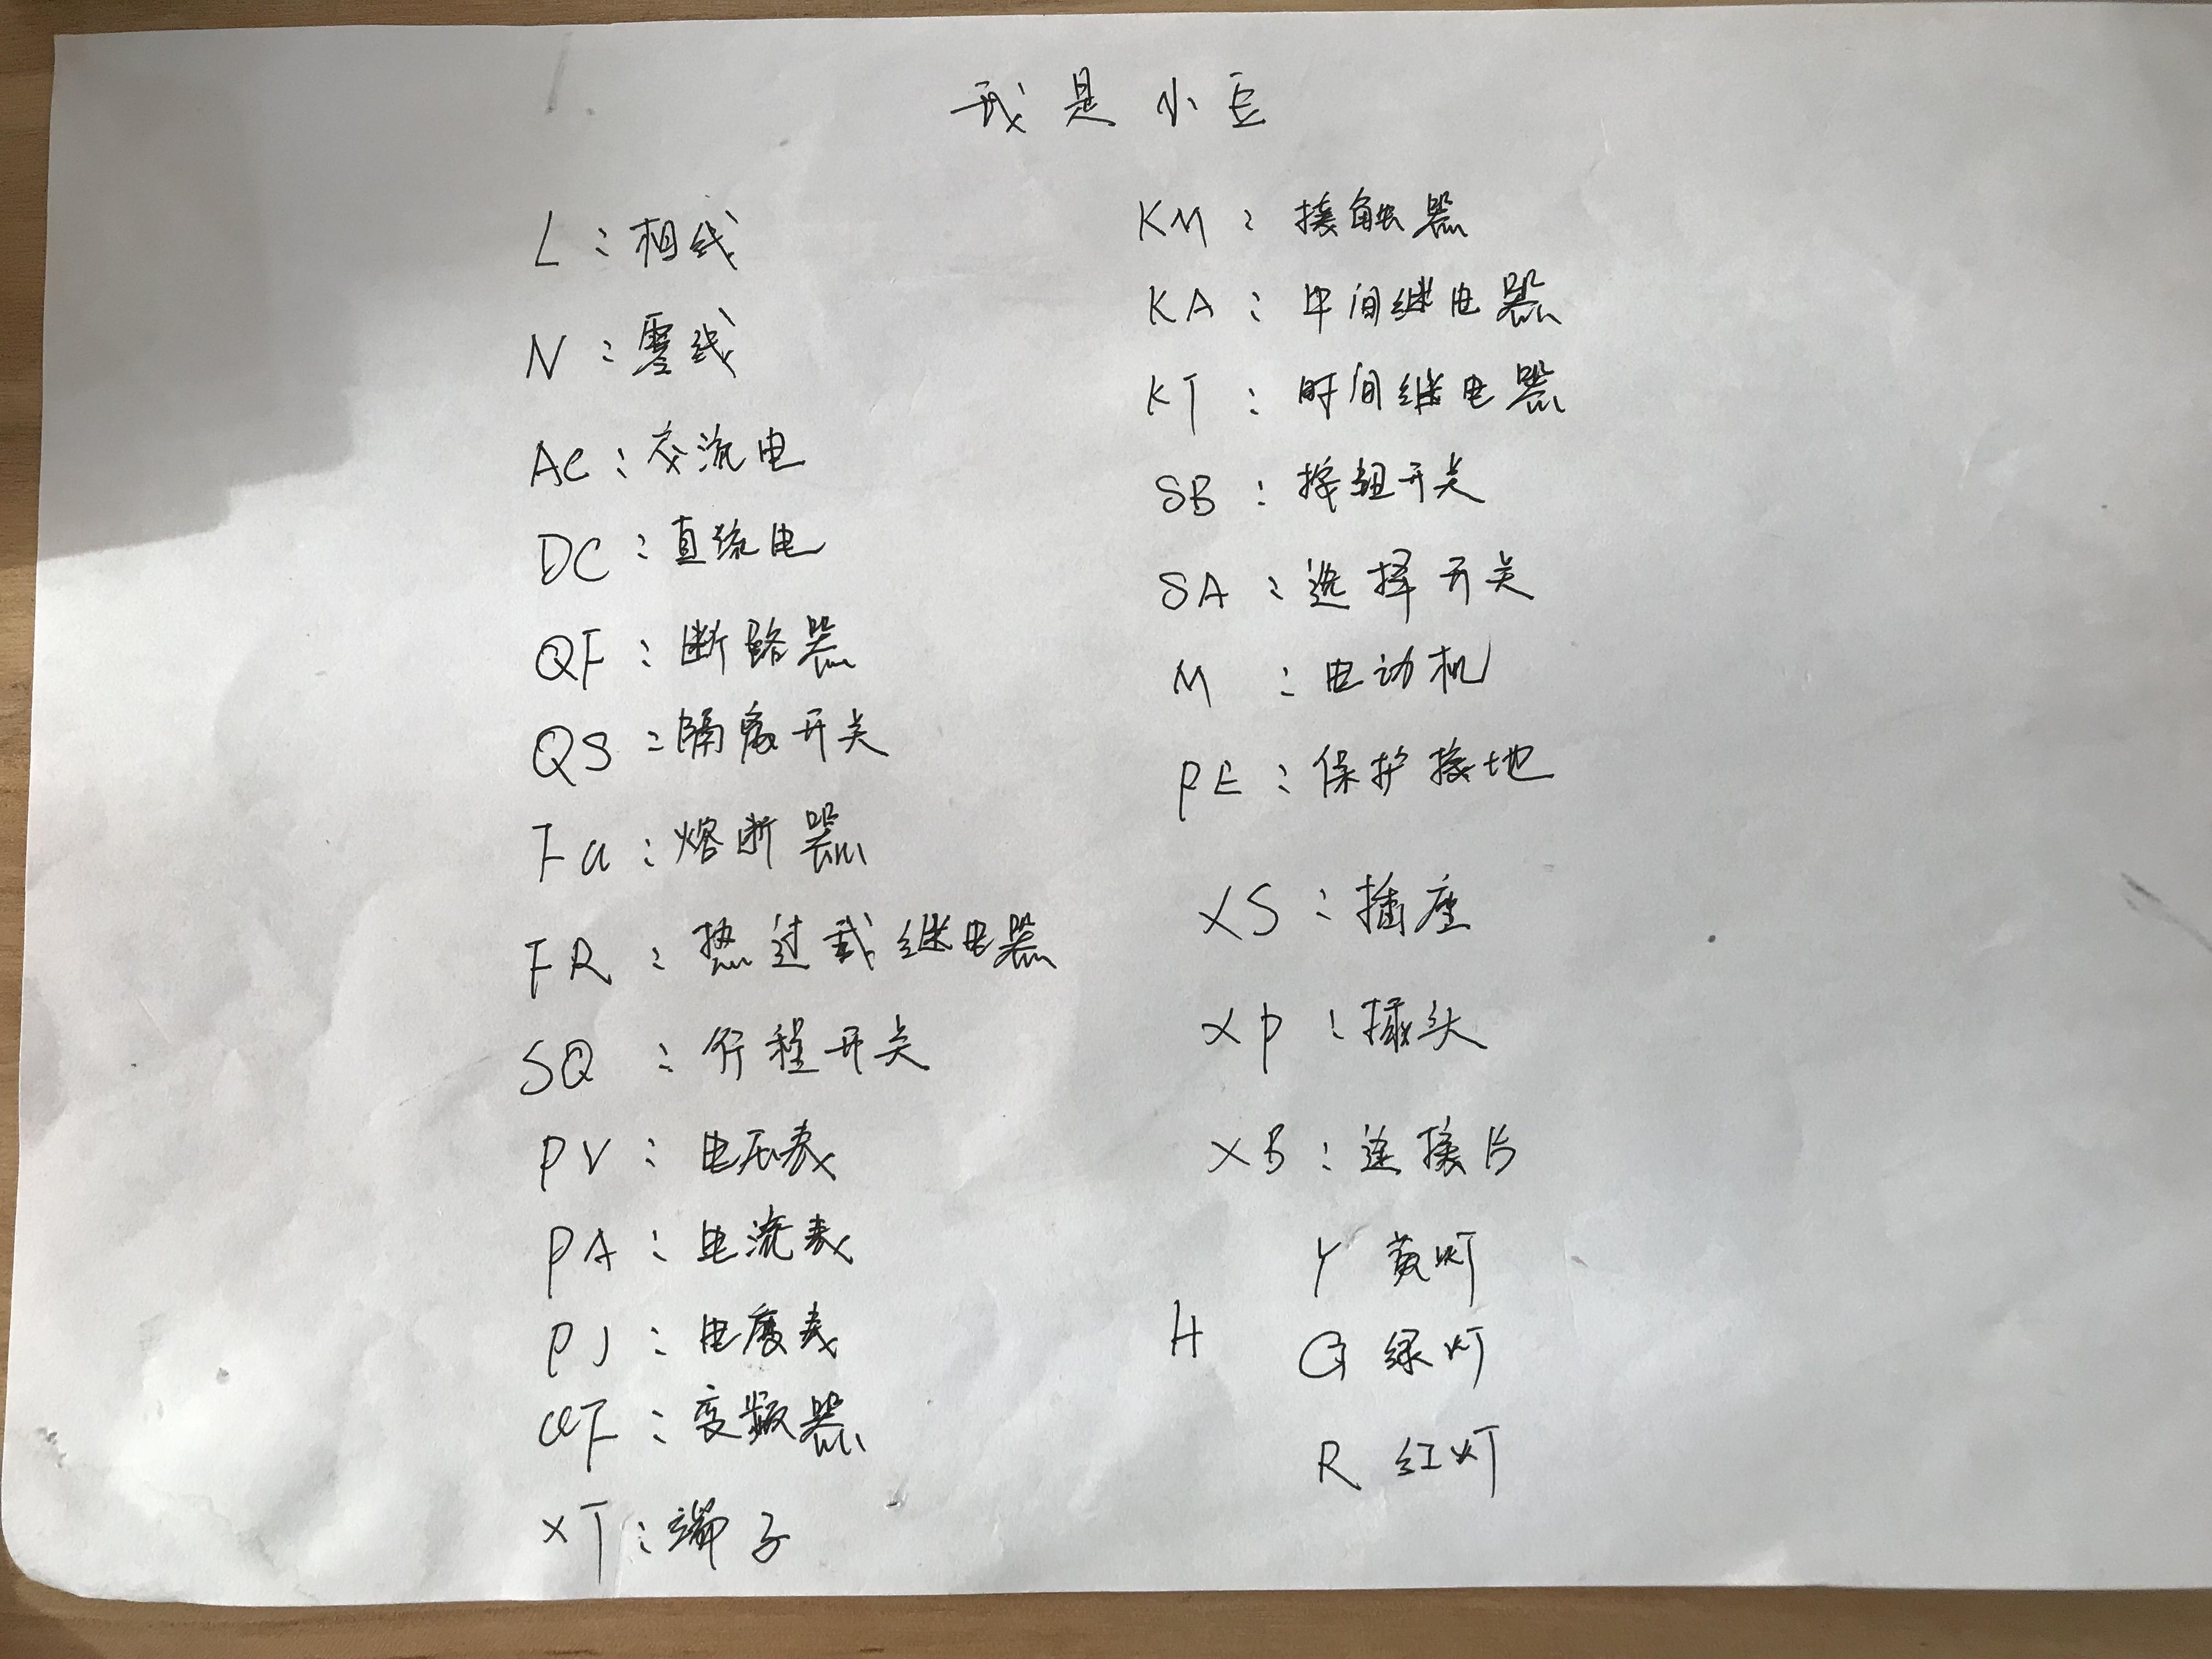 我是小豆
L：相线
N：零线
AC：交流电
DC：直流电
QF：断路器
QS：隔离开关
Fu：熔断器
FR：热过载继电器
SQ：行程开关
PV：电压表
PA：电流表
PJ：电度表
UF：变频器
XT：端子
KM：接触器
KA：中间继电器
KT：时间继电器
SB：按钮开关
SA：选择开关
M：电动机
PE：保护接地
XS：插座
XP：插头
XB：连接片
Y 黄灯
H
G 绿灯
R 红灯